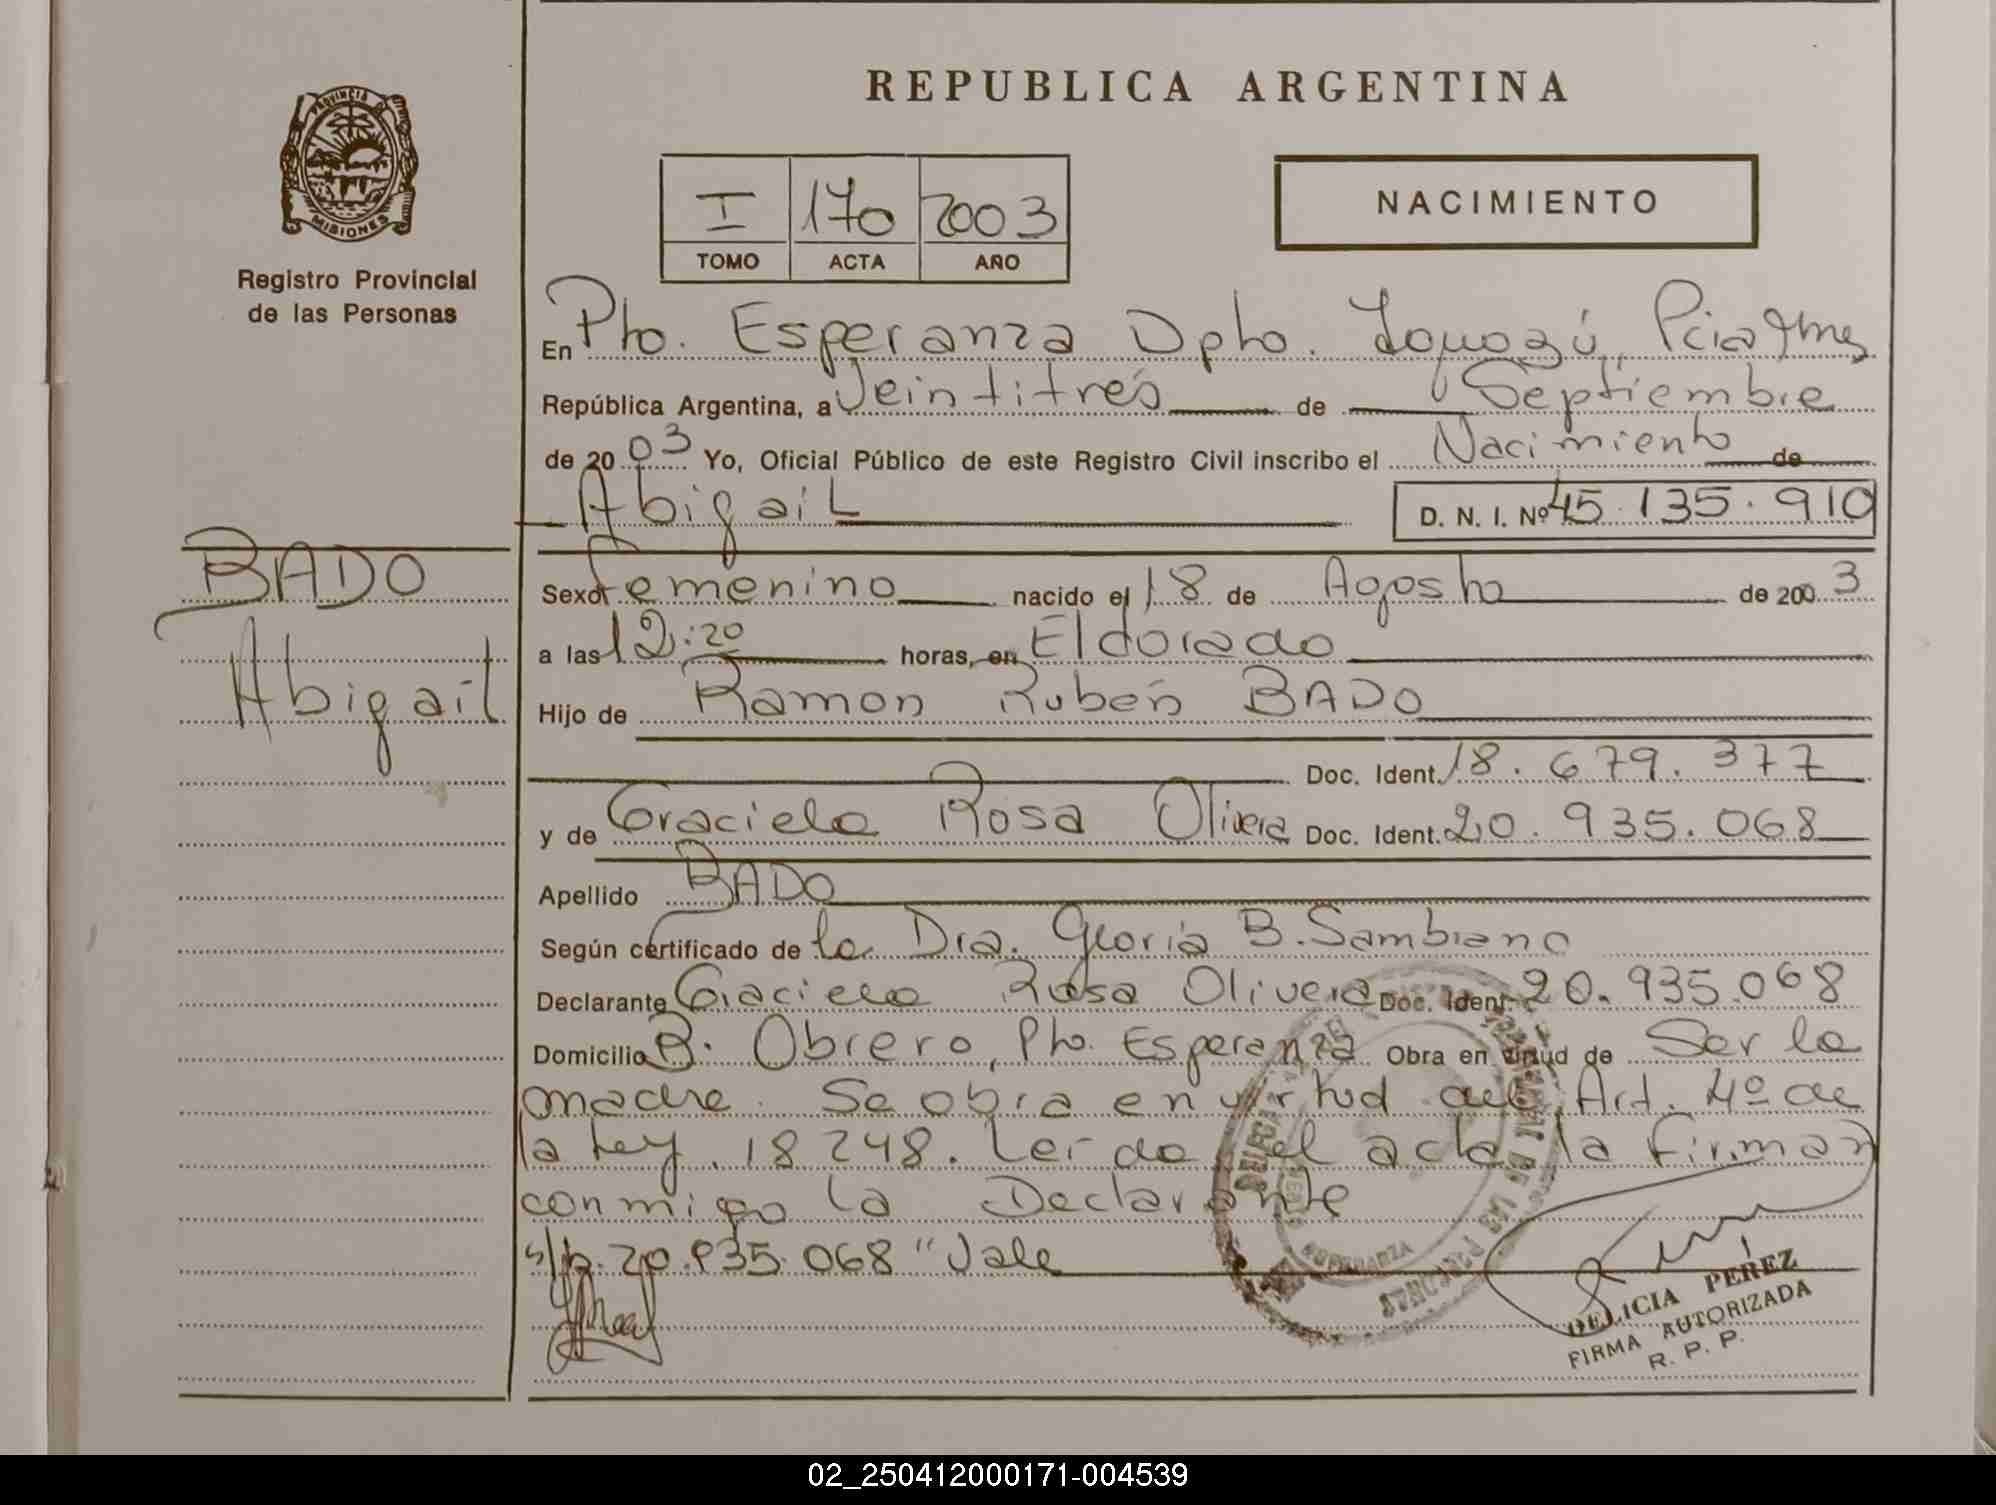 REPUBLICA ARGENTINA
PROVINCIA D MISIONES
Registro Provincial
de las Personas
I 170 2003
TOMO ACTA AÑO
NACIMIENTO
En Pto. Esperanza Dpto. Iguazú, Pcia Mnes
República Argentina, a Veintitrés de Septiembre
de 2003 Yo, Oficial Público de este Registro Civil inscribo el Nacimiento de
Abigail D. N. I. Nº 45.135.910
BADO
Abigail
Sexo Femenino nacido el 18 de Agosto de 2003
a las 12:20 horas, en Eldorado
Hijo de Ramon Rubén BADO
Doc. Ident. 18.679.377
y de Graciela Rosa Olivera Doc. Ident. 20.935.068
Apellido BADO
Según certificado de la Dra. Gloria B. Sambrano
Declarante Graciela Rosa Olivera Doc. Ident. 20.935.068
Domicilio B. Obrero, Pto. Esperanza Obra en virtud de Ser la
madre. Se obra en virtud del Art. 4º de
la Ley 18248. Leida el acta la firman
conmigo la Declarante
s/b. 20.935.068 "Vale
DELICIA PEREZ
FIRMA AUTORIZADA
R. P. P.
02_250412000171-004539